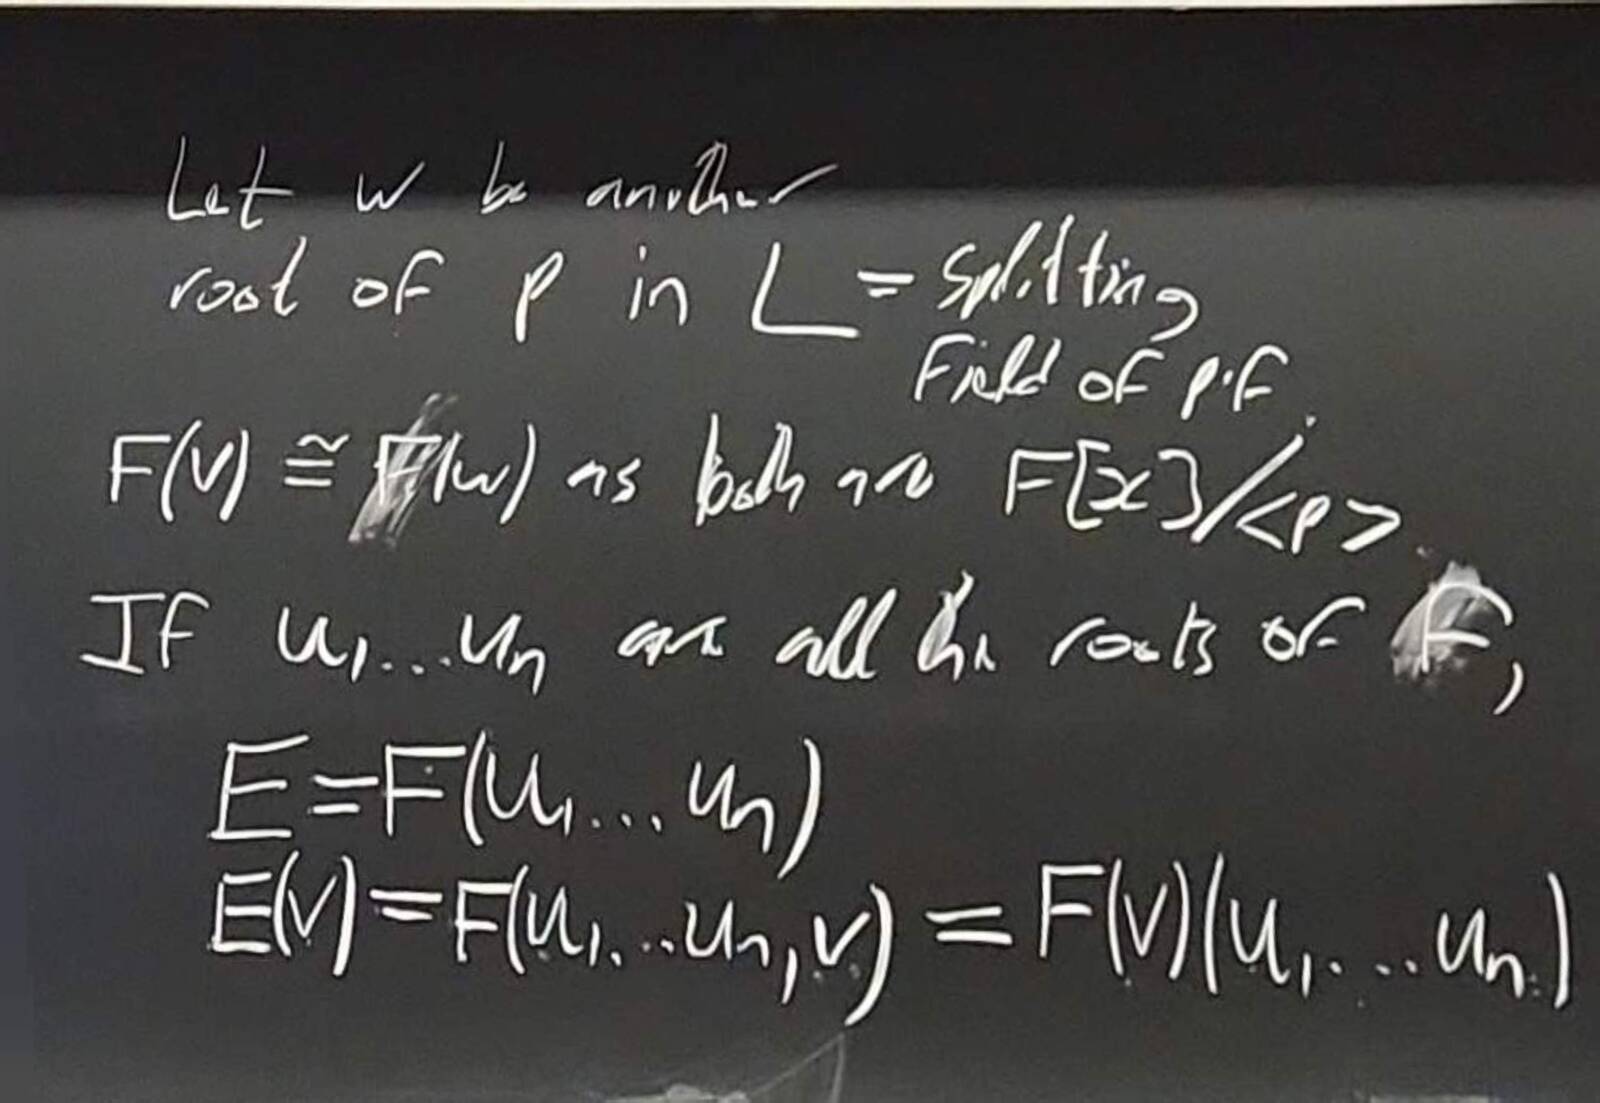 Let w be another
root of p in L = splitting
field of p·f.
F(v) ≅ F(w) as both are F[x]/<p>.
If u₁...uₙ are all the roots of f,
E=F(u₁...uₙ)
E(v)=F(u₁...uₙ,v) = F(v)(u₁...uₙ)